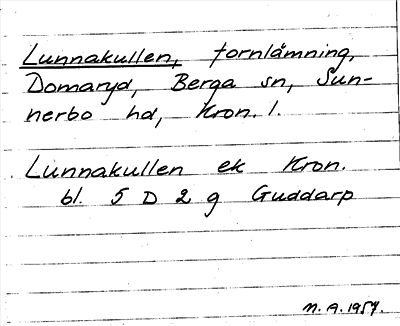 Lunnakullen, fornlämning,
Domaryd, Berga sn, Sun-
nerbo hd, Kron. l.
Lunnakullen ek Kron.
bl. 5 D 2 g Guddarp
M. A. 1957.